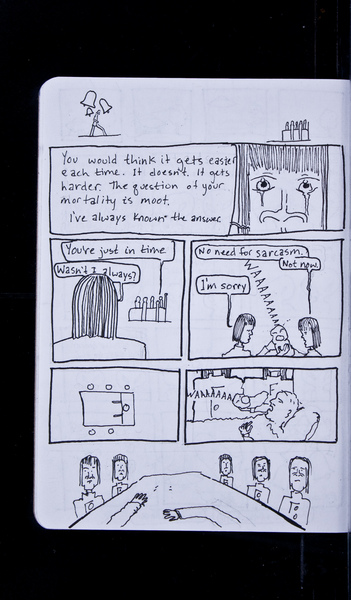 You would think it gets easier
each time. It doesn't. It gets
harder. The question of your
mortality is moot.
I've always known the answer.
You're just in time
Wasn't I always?
No need for sarcasm.
Not now.
WAAAAAAAA
I'm sorry
WAAAAAAAA